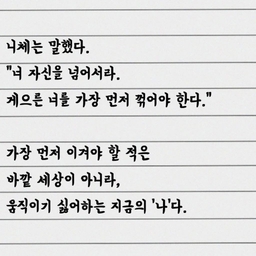 니체는 말했다.
"너 자신을 넘어서라.
게으른 너를 가장 먼저 꺾어야 한다."
가장 먼저 이겨야 할 적은
바깥 세상이 아니라,
움직이기 싫어하는 지금의 '나'다.